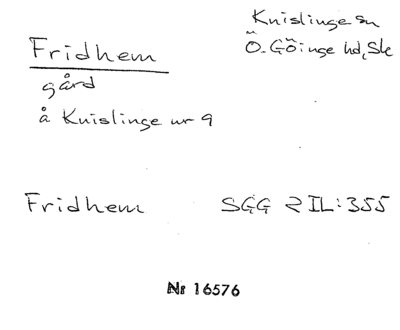 Fridhem
gård
å Knislinge nr 9
Knislinge sn
Ö. Göinge hd, Sk
Fridhem SGG 2 II:355
Nr 16576